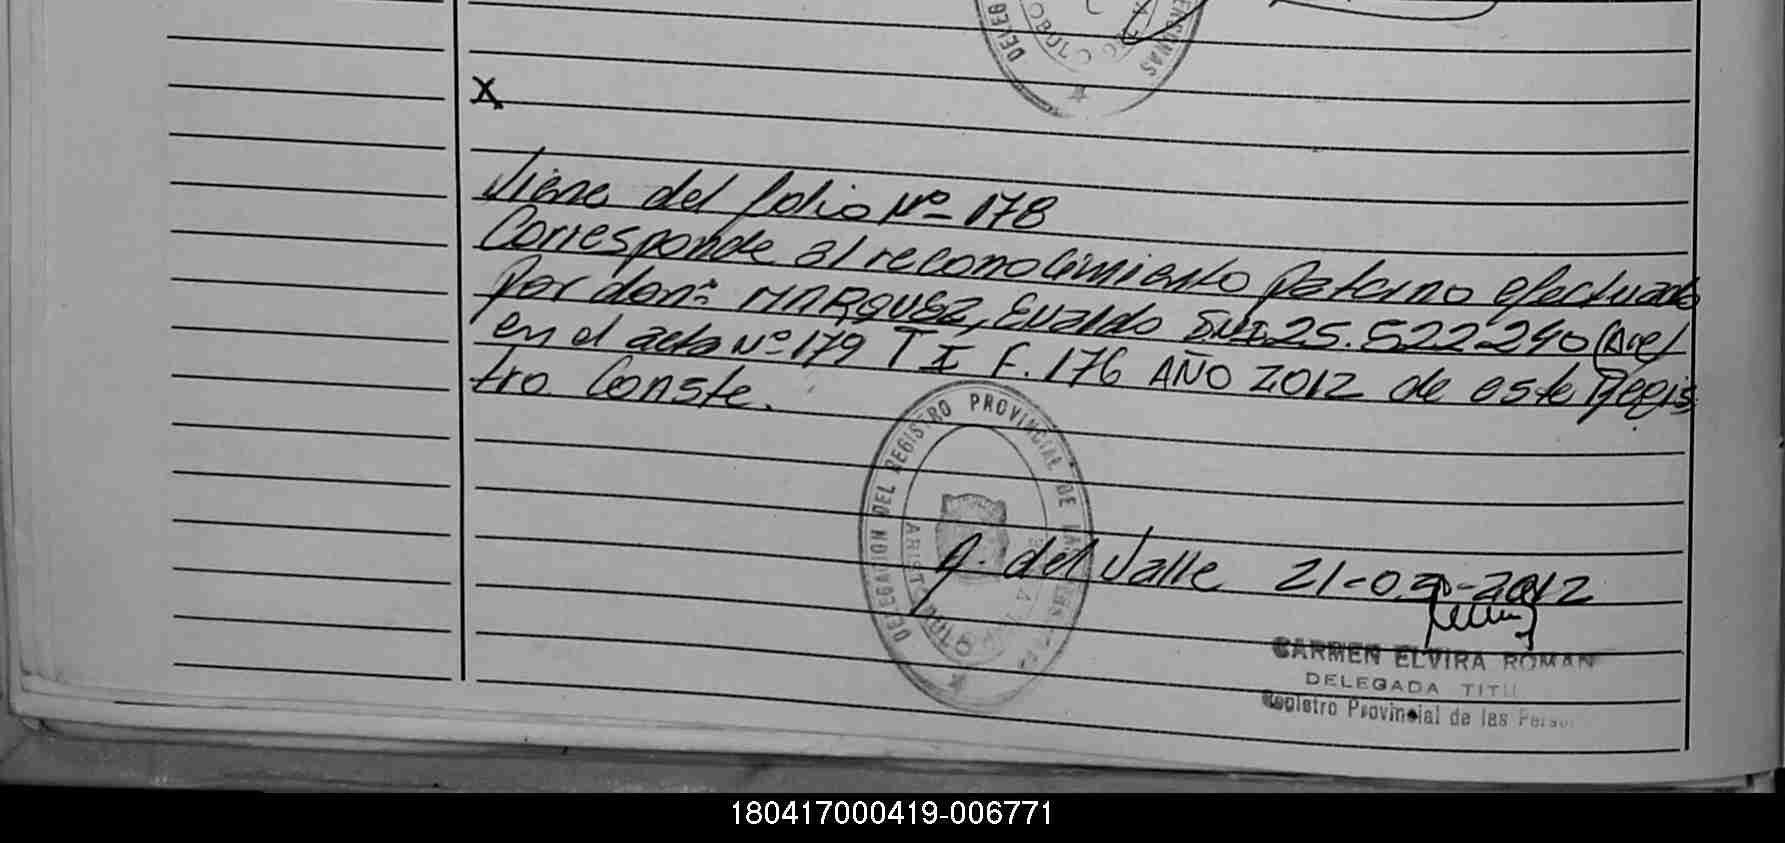 X
Viene del folio Nº 178
Corresponde al reconocimiento paterno efectuado
por don: MARQUEZ, Evaldo D.N.I. 25.522.240
en el acta Nº 179 T I F. 176 AÑO 2012 de este Regis
tro. Conste.
DELEGACION DEL REGISTRO PROVINCIAL DE LAS
del Valle 21-0 -2012
CARMEN ELVIRA ROMAN
DELEGADA TITU
Registro Provincial de las Perso
180417000419-006771